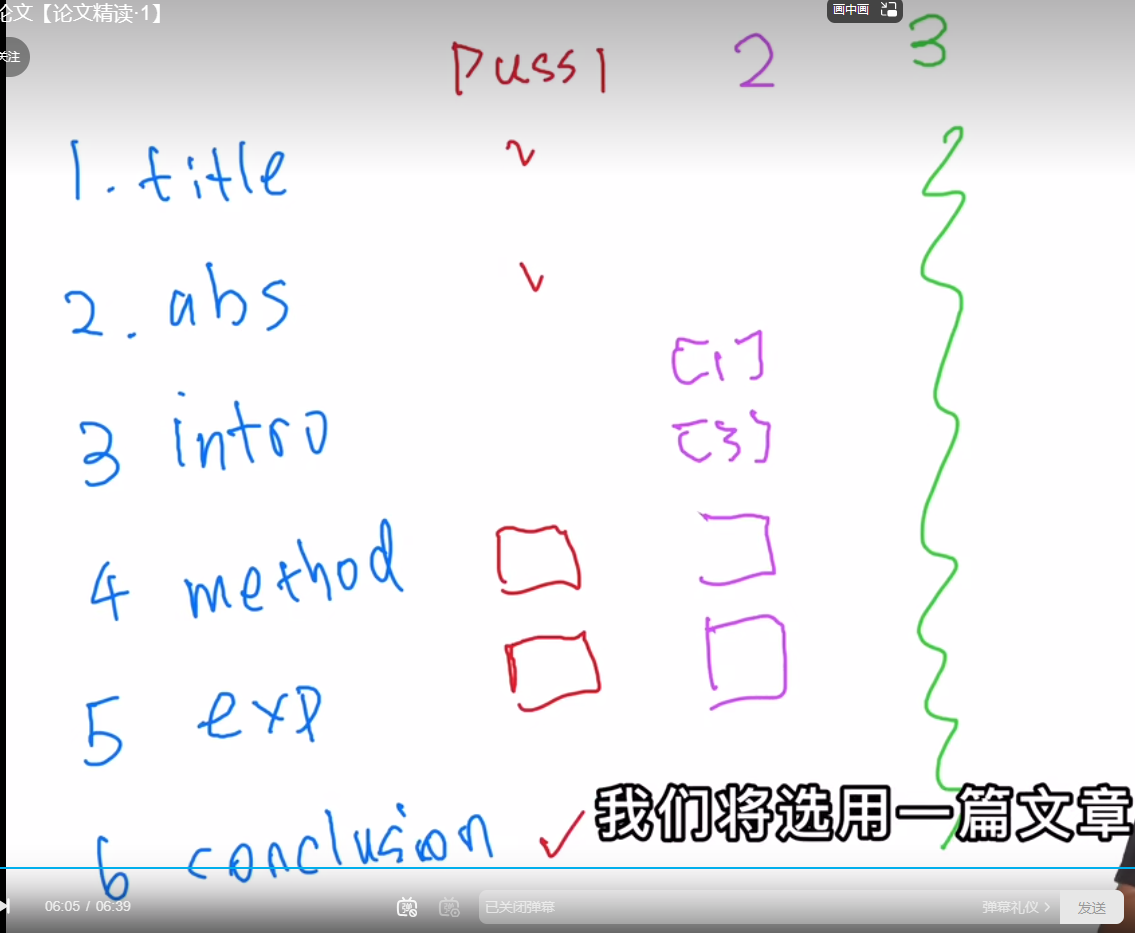 论文【论文精读·1】
画中画
关注
Pass 1 2 3
1. title
2. abs
[1]
3 intro
[3]
4 method
5 exp
6 conclusion
我们将选用一篇文章
06:05 / 06:39
弹
弹
已关闭弹幕
弹幕礼仪 >
发送